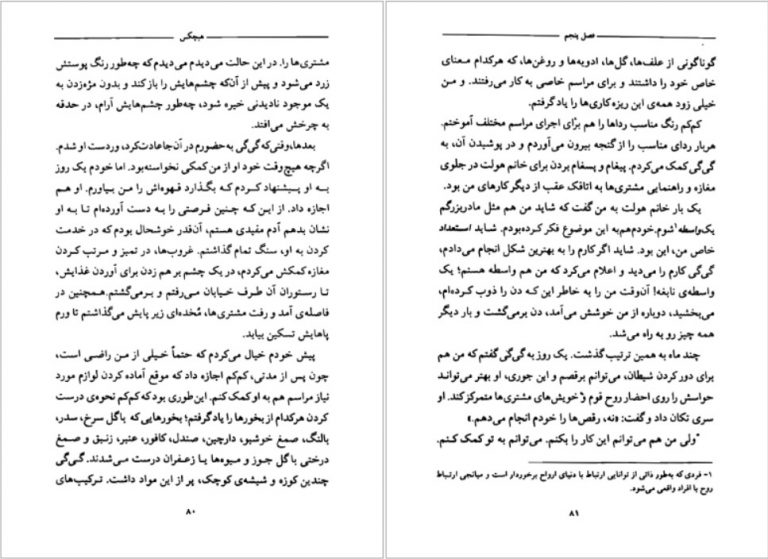 هیچکس
مشتری‌ها را. در این حالت می‌دیدم می‌دیدم که چه‌طور رنگ پوستش
زرد می‌شود و پیش از آن‌که چشم‌هایش را باز کند و بدون مژه‌زدن به
یک موجود نادیدنی خیره شود، چه‌طور چشم‌هایش آرام، در حدقه
به چرخش می‌افتد.
بعدها، وقتی که گی‌گی به حضورم در آن جا عادت کرد، وردست او شدم.
اگرچه هیچ‌وقت خود او از من کمکی نخواسته‌بود. اما خودم یک روز
به او پیشنهاد کردم که بگذارد قهوه‌اش را من بیاورم. او هم
اجازه داد. از این که چنین فرصتی را به دست آورده‌ام تا به او
نشان بدهم آدم مفیدی هستم، آن‌قدر خوشحال بودم که در خدمت
کردن به او، سنگ تمام گذاشتم. غروب‌ها، در تمیز و مرتب کردن
مغازه کمکش می‌کردم، در یک چشم بر هم زدن برای آوردن غذایش،
تا رستوران آن طرف خیابان می‌رفتم و برمی‌گشتم. همچنین در
فاصله‌ی آمد و رفت مشتری‌ها، مُخده‌ای زیر پایش می‌گذاشتم تا ورم
پاهایش تسکین بیابد.
پیش خودم خیال می‌کردم که حتماً خیلی از من راضی است،
چون پس از مدتی، کم‌کم اجازه داد که موقع آماده کردن لوازم مورد
نیاز مراسم هم به او کمک کنم. این‌طوری بود که کم‌کم نحوه‌ی درست
کردن هرکدام از بخورها را یاد گرفتم؛ بخورهایی که با گل سرخ، سدر،
بالنگ، صمغ خوشبو، دارچین، صندل، کافور، عنبر، زنبق و صمغ
درختی با گل جوز و میوه‌ها یا زعفران درست می‌شدند. گی‌گی
چندین کوزه و شیشه‌ی کوچک، پر از این مواد داشت. ترکیب‌های
۸۰
فصل پنجم
گوناگونی از علف‌ها، گل‌ها، ادویه‌ها و روغن‌ها، که هرکدام معنای
خاص خود را داشتند و برای مراسم خاصی به کار می‌رفتند. و من
خیلی زود همه‌ی این ریزه کاری‌ها را یاد گرفتم.
کم‌کم رنگ مناسب رداها را هم برای اجرای مراسم مختلف آموختم.
هربار ردای مناسب را از گنجه بیرون می‌آوردم و در پوشیدن آن، به
گی‌گی کمک می‌کردم. پیغام و پسغام بردن برای خانم هولت در جلوی
مغازه و راهنمایی مشتری‌ها به اتاقک عقب از دیگر کارهای من بود.
یک بار خانم هولت به من گفت که شاید من هم مثل مادربزرگم
یک واسطه۱ شوم. خودم هم به این موضوع فکر کرده‌بودم. شاید استعداد
خاص من، این بود. شاید اگر کارم را به بهترین شکل انجام می‌دادم،
گی‌گی کارم را می‌دید و اعلام می‌کرد که من هم واسطه هستم؛ یک
واسطه‌ی نابغه! آن‌وقت من را به خاطر این که دن را ذوب کرده‌ام،
می‌بخشید، دوباره از من خوشش می‌آمد، دن برمی‌گشت و بار دیگر
همه چیز رو به راه می‌شد.
چند ماه به همین ترتیب گذشت. یک روز به گی‌گی گفتم که من هم
برای دور کردن شیطان، می‌توانم برقصم و این جوری، او بهتر می‌تواند
حواسش را روی احضار روح قوم و خویش‌های مشتری‌ها متمرکز کند. او
سری تکان داد و گفت: «نه، رقص‌ها را خودم انجام می‌دهم.»
"ولی من هم می‌توانم این کار را بکنم. می‌توانم به تو کمک کنم.
۱- فردی که به‌طور ذاتی از توانایی ارتباط با دنیای ارواح برخوردار است و میانجی ارتباط
روح با افراد واقعی می‌شود.
۸۱